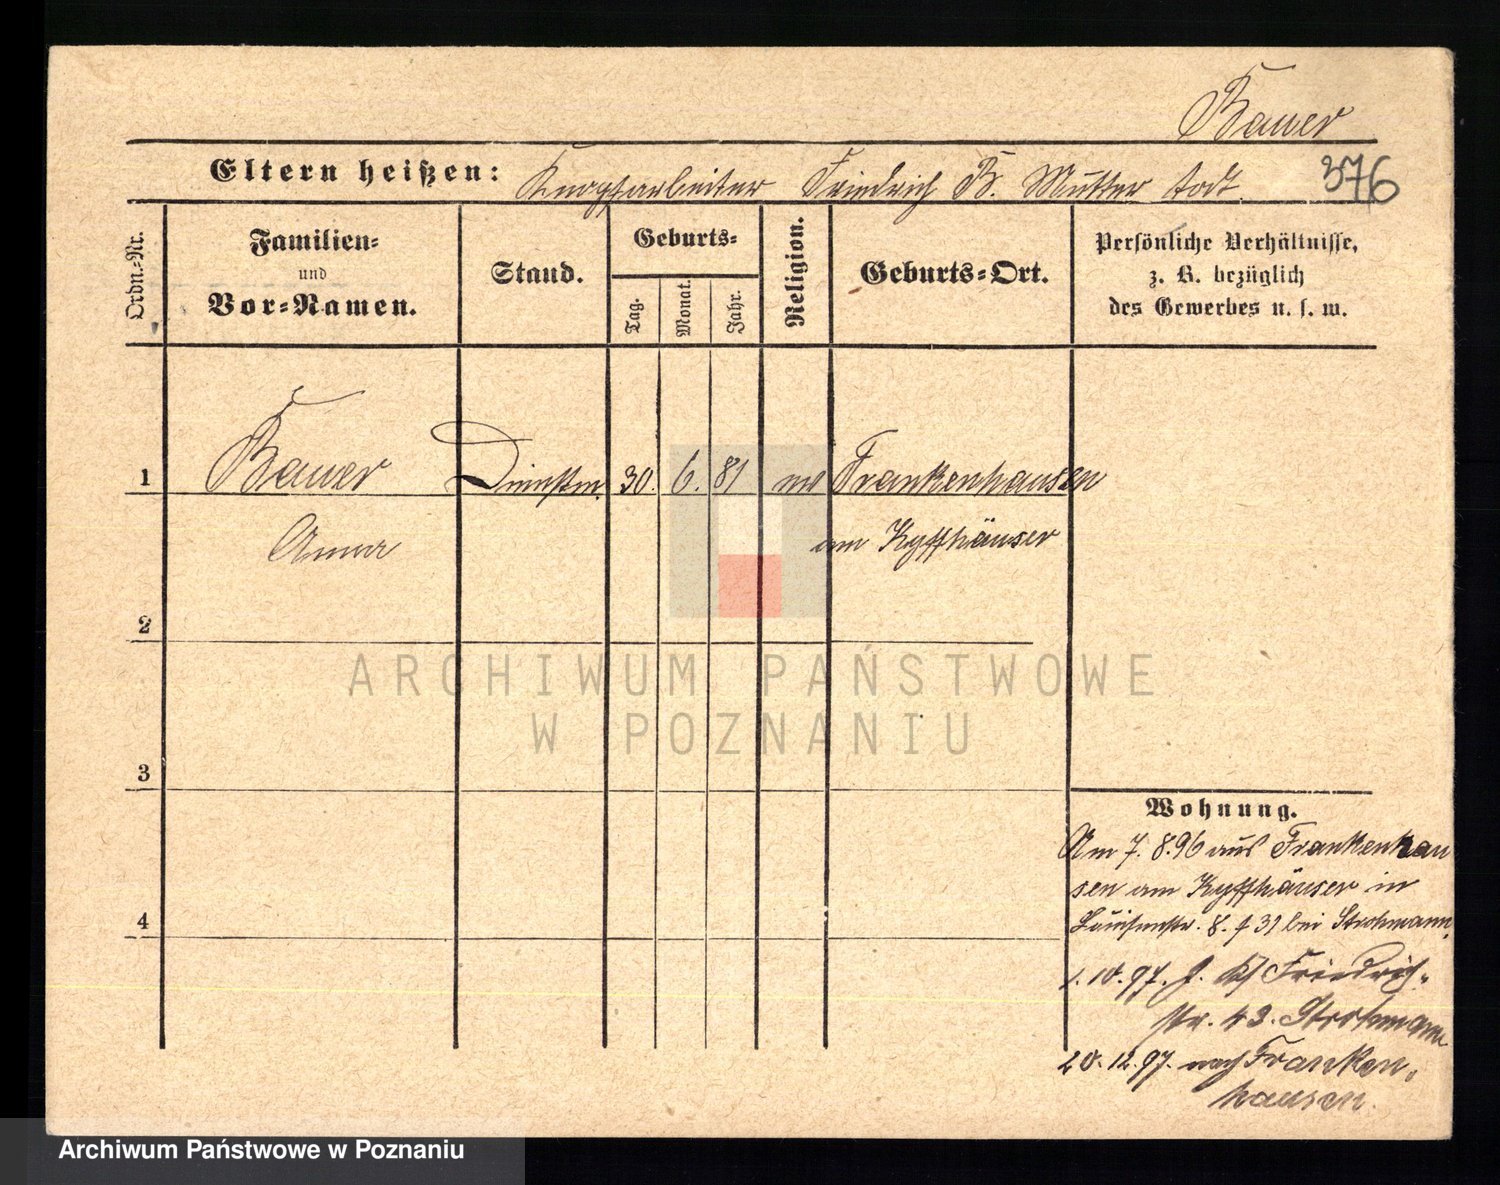 Bauer
Eltern heißen: Knopfarbeiter Friedrich B. Mutter todt.
376
Ordn.-Nr.
Familien-
und
Vor-Namen.
Stand.
Geburts-
Tag.
Monat.
Jahr.
Religion.
Geburts-Ort.
Persönliche Verhältnisse,
z. B. bezüglich
des Gewerbes u. s. w.
1
Bauer Dienstm. 30. 6. 81 ev Frankenhausen
Anna am Kyffhäuser
2
3
4
ARCHIWUM PAŃSTWOWE
W POZNANIU
Wohnung.
Am 7. 8. 96 aus Frankenhau
sen am Kyffhäuser in
Louisenstr. 8. f 31 bei Strohmann.
1. 10. 97. Friedrich-
str. 43. Strohmann
20. 12. 97. nach Franken-
hausen.
Archiwum Państwowe w Poznaniu